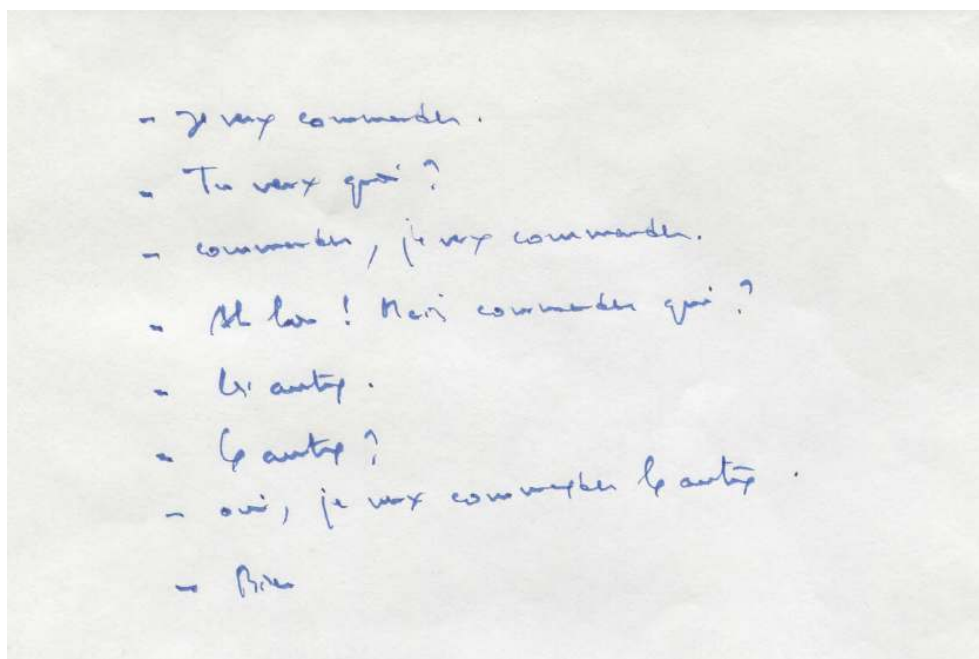 - Je veux commander.
- Tu veux quoi ?
- commander, je veux commander.
- Ah bon ! Mais commander qui ?
- les autres.
- les autres ?
- oui, je veux commander les autres.
- Bien